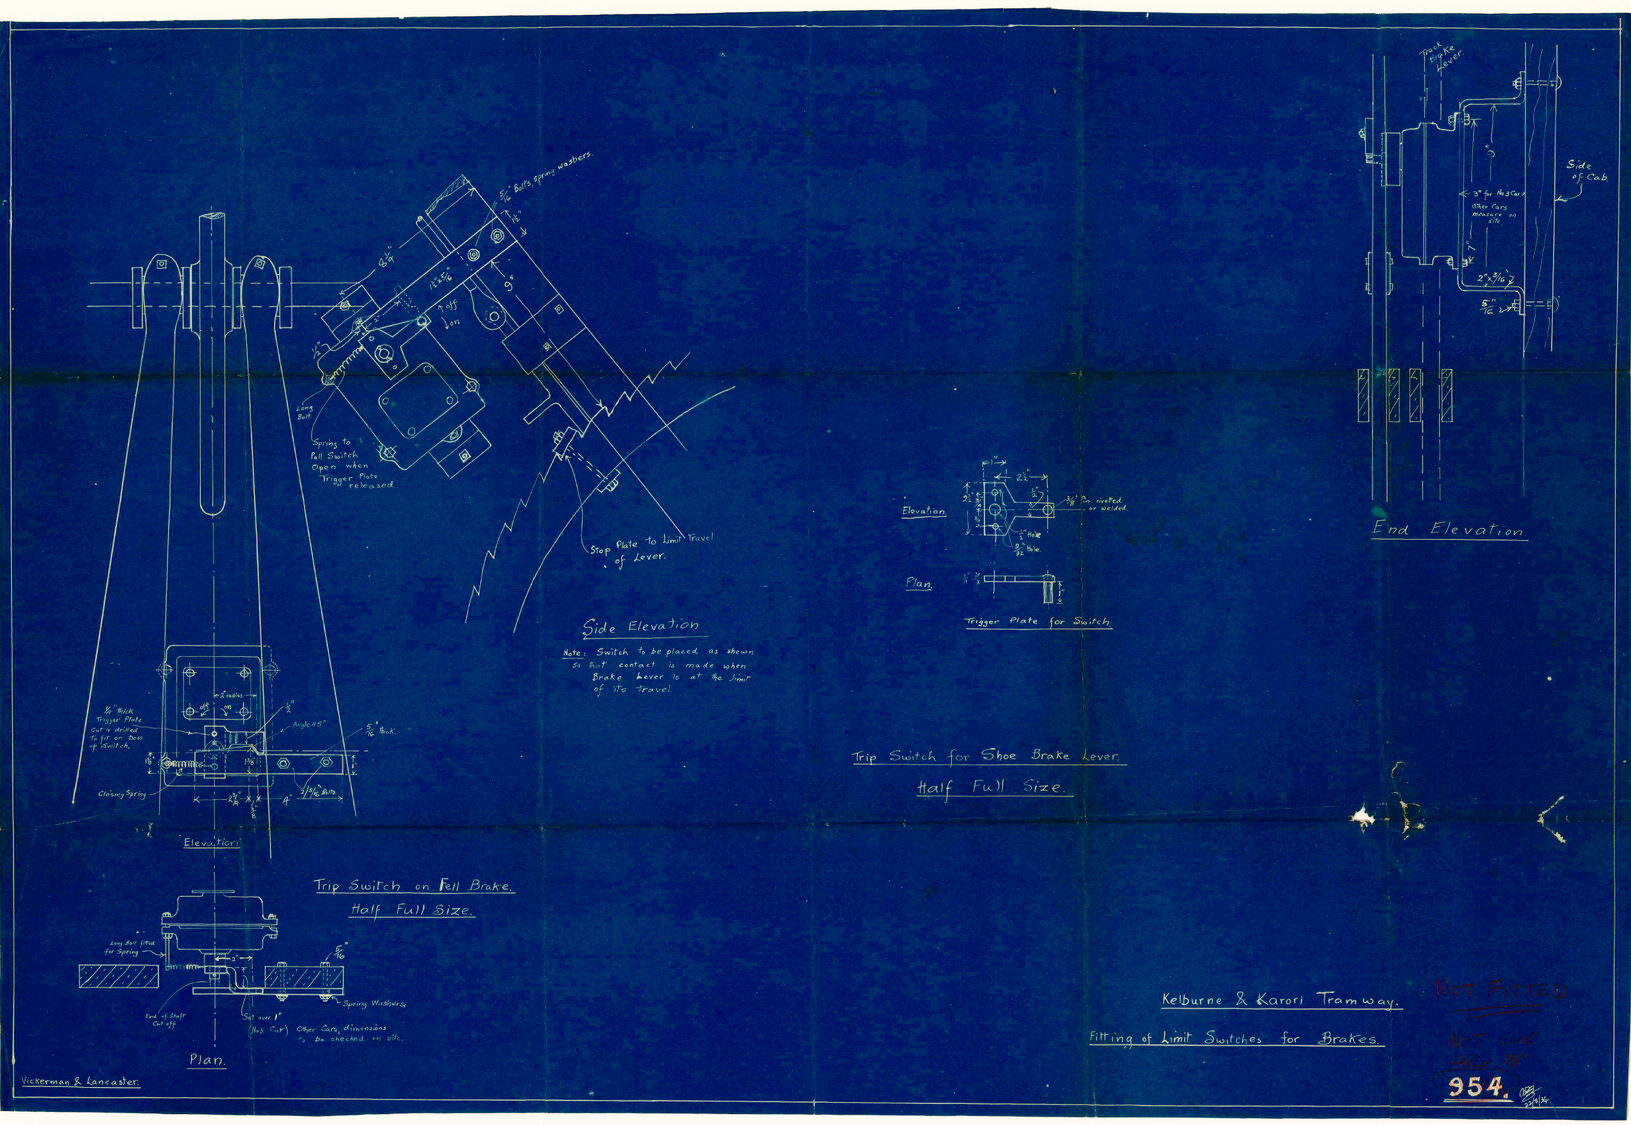 Track
Brake
Lever.
Side
of Cab.
9"
3" for No3 Car
Other Cars
measure on
site
7"
2" x 3/16"
5/16"
End Elevation
5/16" Bolts, spring washers.
8 1/2"
1 1/2" x 5/16"
9"
off
on
1 1/2"
Long
Bolt.
Spring to
Pull Switch
Open when
Trigger Plate
released
Stop Plate to Limit Travel
of Lever.
Side Elevation
Note: Switch to be placed as shewn
so that contact is made when
Brake Lever is at the limit
of its travel
1"
2 1/2"
Elevation.
3/8" Pin riveted
or welded.
1/2" Hole
9/32" Hole.
Plan.
Trigger Plate for Switch
Trip Switch for Shoe Brake Lever.
Half Full Size.
2" radius
off
on
1/4" thick
Trigger Plate
Cut & drilled
To fit on Boss
of Switch.
1/2"
Angle 45°
5/16" thick
Closing Spring
4"
2/5/16" Bolts
Elevation
Trip Switch on Fell Brake.
Half Full Size.
Long Bolt fitted
for Spring
2"
5/16"
Spring Washers,
End of Shaft
Cut off.
Set over 1"
(No3 Car) Other Cars, dimensions
to be checked on site.
Plan.
Vickerman & Lancaster.
Kelburne & Karori Tramway.
Fitting of Limit Switches for Brakes.
NOT FITTED
954.